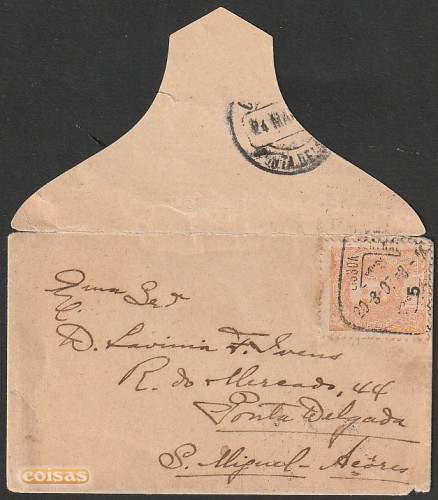 24 MA
PONTA DEL
LISBOA CENTRAL
20-3-07
5
Exma Snrª
D. Lavinia F. Ivens
R. do Mercado, 44
Ponta Delgada
S. Miguel - Açôres
coisas